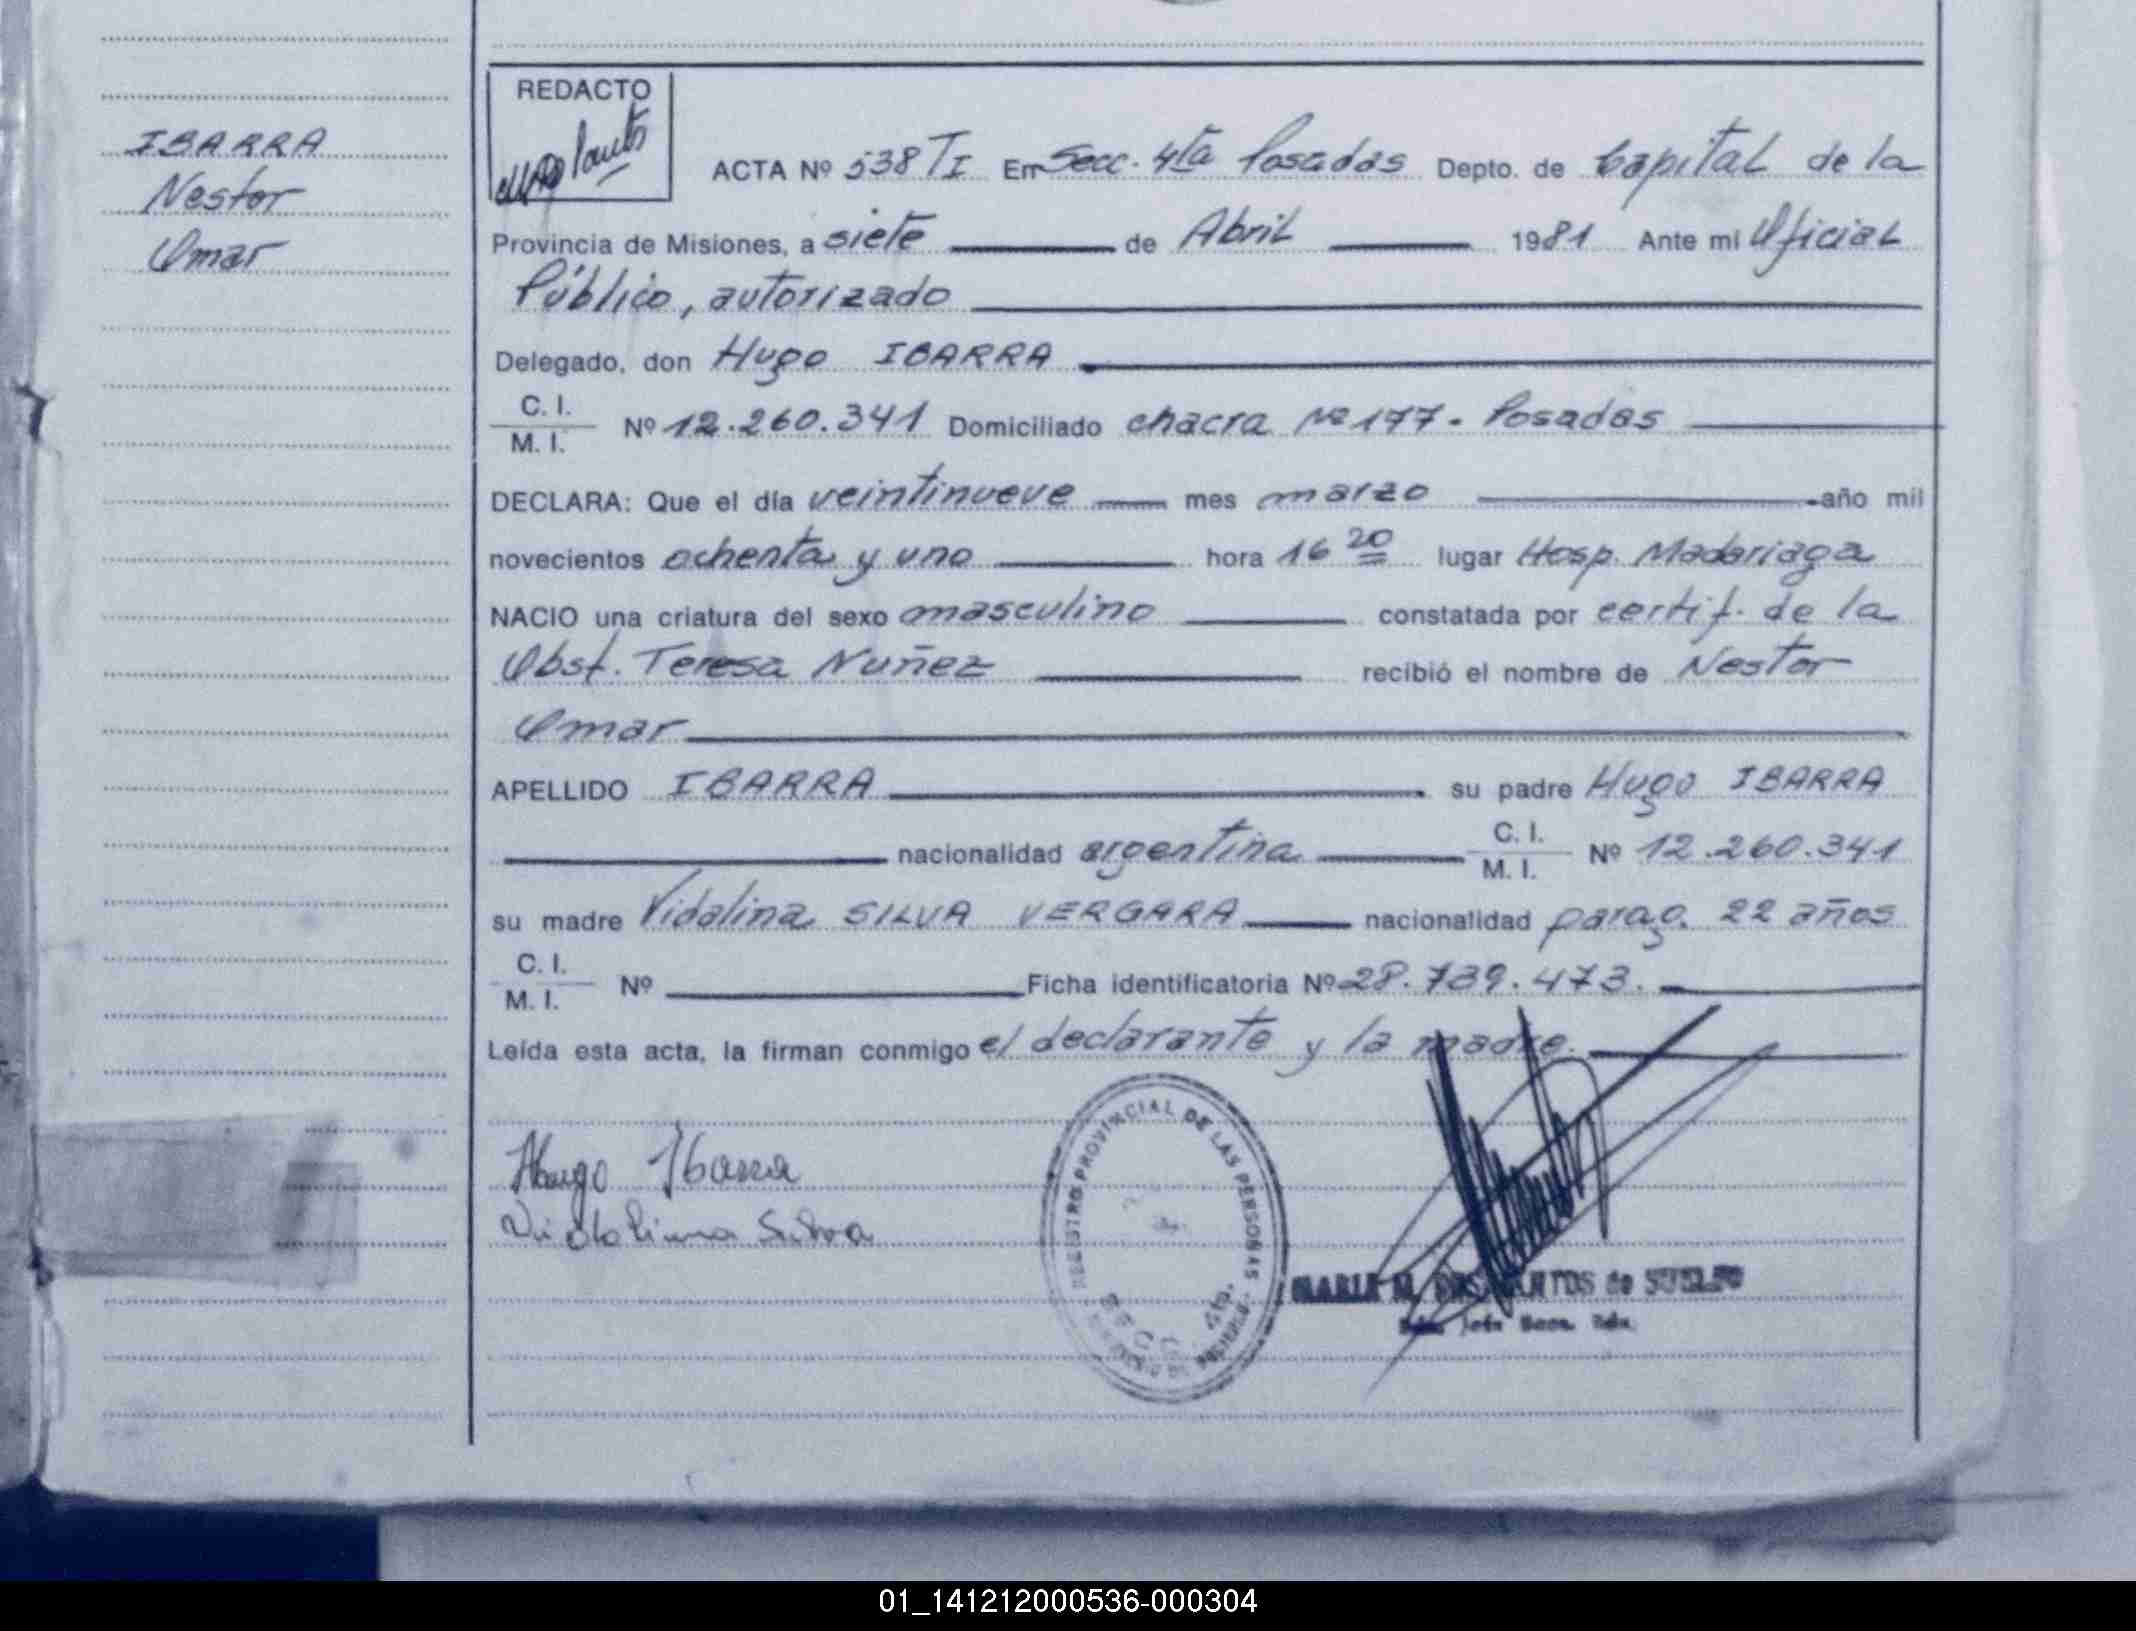 IBARRA
Nestor
Omar
REDACTO
ACTA Nº 538 TI En Secc. 4ta Posadas Depto. de Capital de la
Provincia de Misiones, a siete de Abril 1981 Ante mi Oficial
Público, autorizado
Delegado, don Hugo IBARRA
C. I.
M. I. Nº 12.260.341 Domiciliado chacra Nº 177 - Posadas
DECLARA: Que el día veintinueve mes marzo año mil
novecientos ochenta y uno hora 16 20 lugar Hosp. Madariaga
NACIO una criatura del sexo masculino constatada por certif. de la
Obst. Teresa Nuñez recibió el nombre de Nestor
Omar
APELLIDO IBARRA su padre Hugo IBARRA
nacionalidad argentina C. I. M. I. Nº 12.260.341
su madre Vidalina SILVA VERGARA nacionalidad parag. 22 años
C. I.
M. I. Nº Ficha identificatoria Nº 28.739.473.
Leída esta acta, la firman conmigo el declarante y la madre.
Hugo Ibarra
REGISTRO PROVINCIAL DE LAS PERSONAS
MARIA M. DOS SANTOS de
01_141212000536-000304